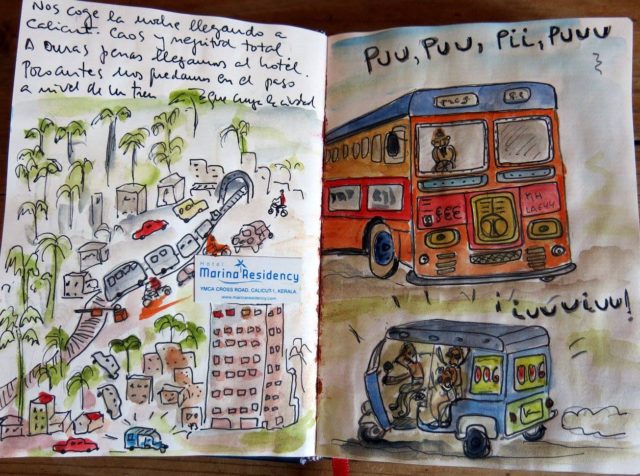 Nos coge la noche llegando a
Calicut. Caos y negritud total
A duras penas llegamos al hotel.
Poco antes nos quedamos en el paso
a nivel de un tren que cruza la ciudad
Hotel
Marina Residency
YMCA CROSS ROAD, CALICUT-1, KERALA.
www.marinaresidency.com
PUU, PUU, PII, PUUU
¡iuuuiuu!